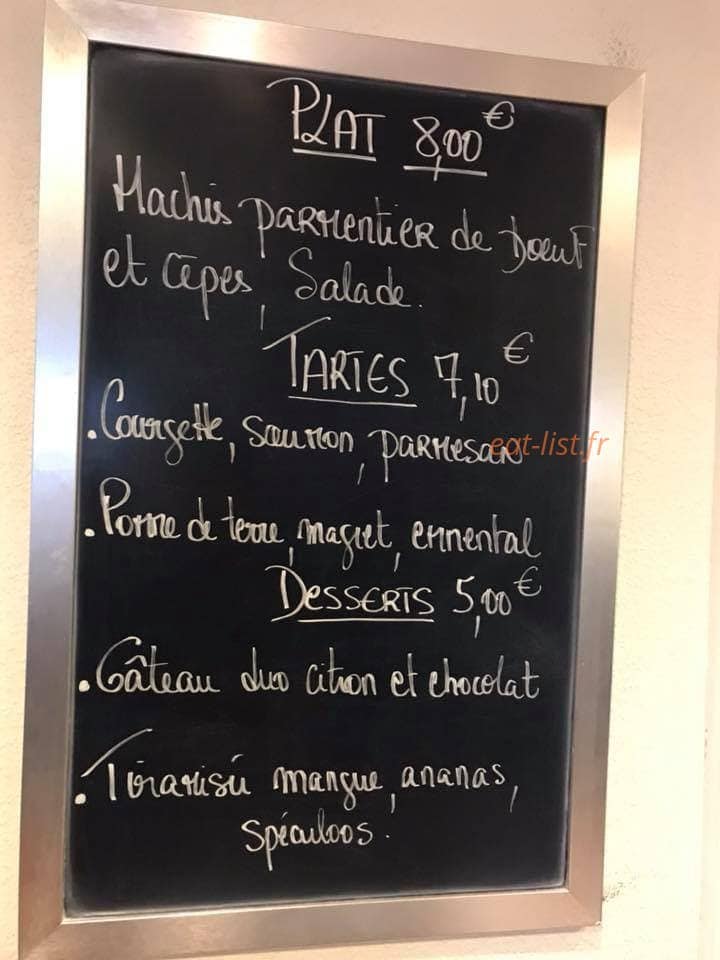 PLAT 8,00€
Hachis parmentier de boeuf
et cèpes, Salade.
TARTES 7,10€
. Courgette, saumon, parmesan
eat-list.fr
. Pomme de terre, magret, emmental
Desserts 5,00€
. Gâteau duo citron et chocolat
. Tiramisú mangue, ananas,
spéculoos.